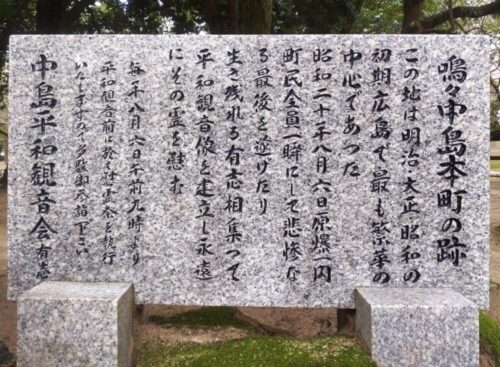 嗚々中島本町の跡
この地は明治・大正昭和の
初期広島で最も繁華の
中心であった
昭和二十年八月六日原爆一閃
町民全員一瞬にして悲惨な
る最後を遂げたり
生き残れる有志相集つて
平和観音像を建立し永遠
にその霊を慰む
毎年八月六日午前九時より
平和観音前に於て慰霊祭を執行
いたしますので多数御参詣下さい
中島平和観音会有志